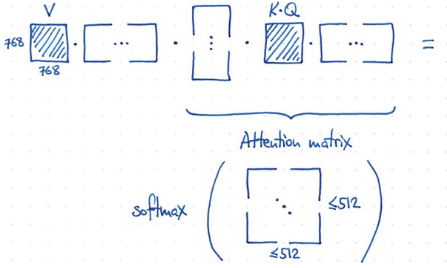 V K·Q
768 · ... · ⋮ · · ... =
768
Attention matrix
softmax ( ⋱ ≤512 )
≤512